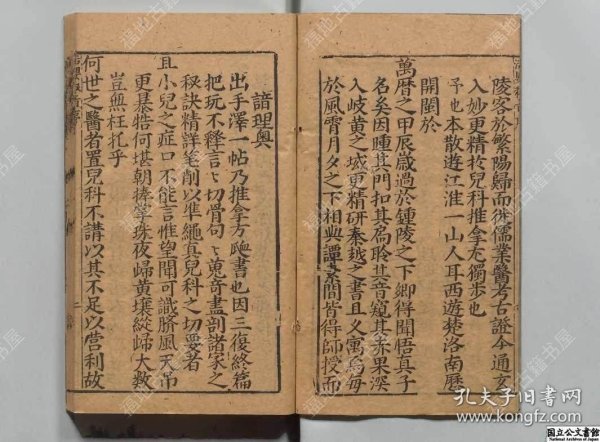 陵客於繁陽歸而從儒業醫考古證今通玄
入妙更精於兒科推拿尤獨步也
予也本散遊江淮一山人耳西遊楚洛南歷
開閩於
萬曆之甲辰歲過於鍾陵之下鄉得聞悟真子
名矣因踵其門扣其扃聆其音窺其奔果深
入岐黃之域更精研秦越之書且又寓焉每
於風霄月夕之下相與譚素問皆得師授而
諳理奧
出手澤一帖乃推拿方脉書也因三復終篇
把玩不釋言言切骨句句蒐奇盡剖諸家之
秘訣精詳笔削以準繩真兒科之切要者
且小兒之症口不能言惟望聞可識臍風天吊
更暴牿何堪朝捧掌珠夜歸黃壤縱歸大数
豈無枉托乎
何世之醫者置兒科不講以其不足以营利故
孔夫子旧书网
www.kongfz.com
国立公文書館
National Archives of Japan